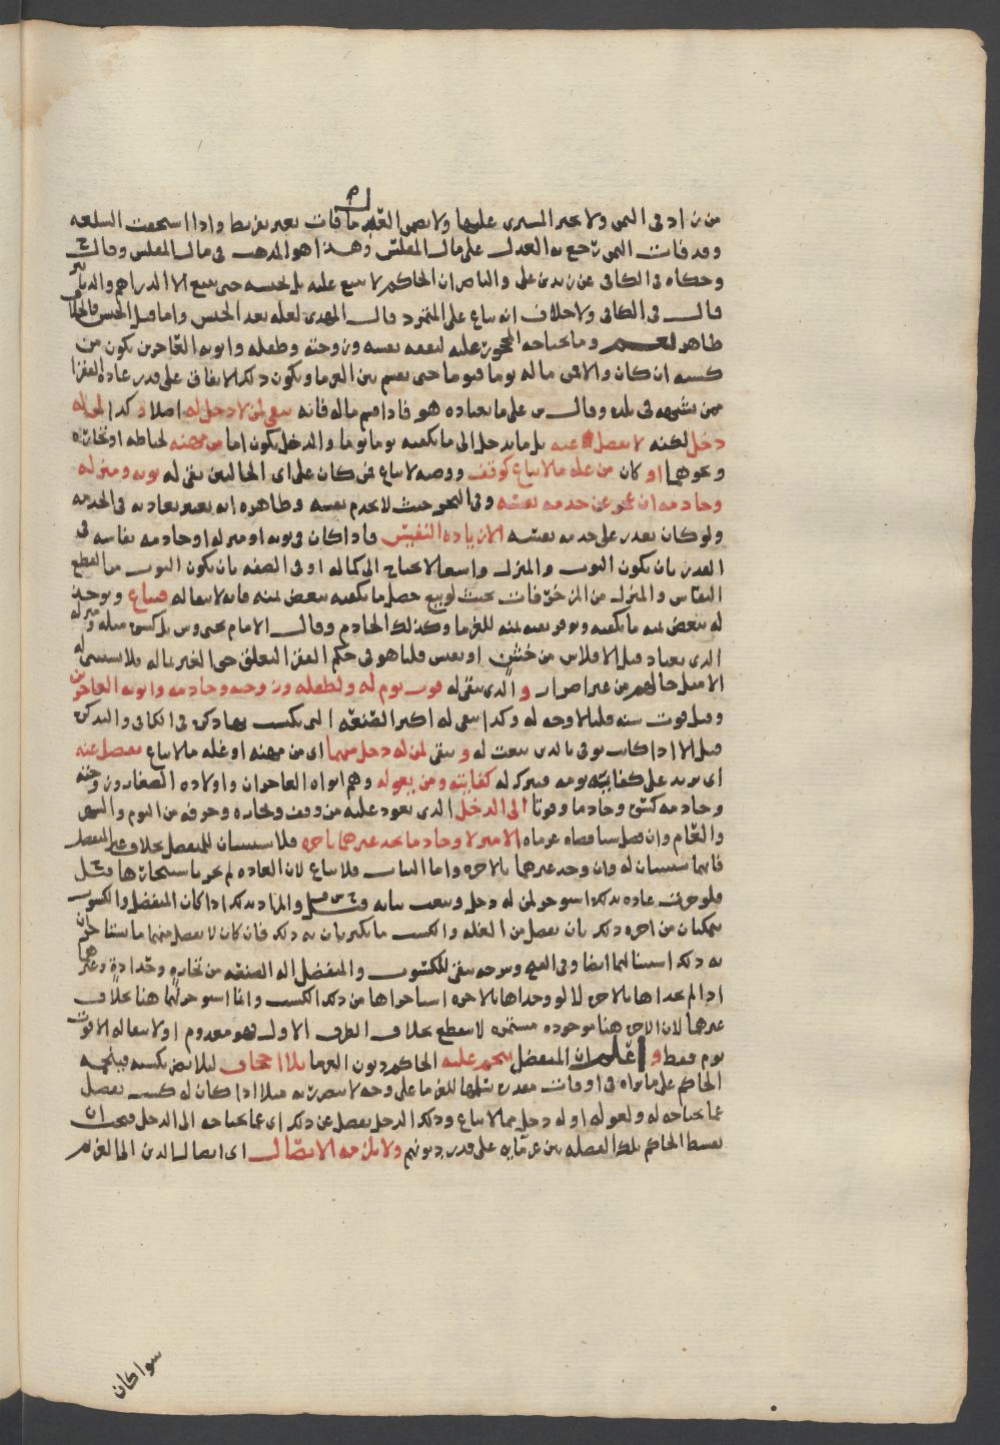 من زاد فى الثمن ولا يجبر المشترى عليها ولا يضمن العدل ما فات بغير تفريط واذا استحقت السلعه
وقد فات الثمن رجع به العدل على مال المفلس وهذا هو المذهب فى مال المفلس وقال ح
وحكاه فى الكافى عن زيد بن على والناصر ان الحاكم لا يبيع عليه بل يحبسه حتى يبيع الا الدراهم والدنانير
قال فى الكافى ولا خلاف انه يباع على المتمرد قال المهدى لعله بعد الحبس واما قبل الحبس فالخلاف
ظاهر نعم وما يحتاجه المحجور عليه لنفقه نفسه وزوجته وطفله وابويه العاجزين يكون من
كسبه ان كان والا فمن ماله يوما فيوما حتى يقسم بين الغرما ويكون ذلك الانفاق على قدر عادة الفقرا
ممن يشبهه فى بلده وقال س على ما يعتاده هو فاذا قسم ماله فانه يبقى لمن لا دخل له اصلا وكذا لمن له
دخل لكنه لا يفضل عنه بل ما يدخل الى ما يكفيه يوما يوما والدخل يكون اما من مهنه لخياطه او تجاره
ونحوهما او كان من غله ما لا يباع كوقف ووصيه لا تباع فمن كان على اى الحالين بقى له ثوبه ومنزله
وخادمه ان عجز عن خدمه نفسه وفى البحر حيث لا يخدم نفسه وظاهره انه يعتبر بعادته فى الخدمه
ولو كان يقدر على خدمه نفسه الا زياده النفيس فاذا كان ثوبه او منزله او خادمه نفاسه فى
القدر بان يكون الثوب والمنزل واسعا لا يحتاج الى كماله او فى الصفه بان يكون الثوب من القطع
النفاس والمنزل من المزخرفات بحيث لو بيع حصل ما يكفيه ببعض ثمنه فانه لا يبقا له فيباع ويوخذ
له ببعض ثمنه ما يكفيه ويوفر بقيه ثمنه للغرما وكذلك الخادم وقال الامام يحيى وس بل كسوه مثله ومنزله
الذى يعتاد قبل الافلاس من خشن او نفيس قلنا هو فى حكم الفقرا لتعلق حق الغير بماله فلا يستثنى له
الا مثل حالهم من غير اضرار والذى يبقى له قوت يوم له ولطفله وزوجته وخادمه وابويه العاجزين
وقيل قوت سنه قلنا لا وجه له وكذا يبقى له اكبر الصنعه التى يكتسب بها ذكره فى الكافى والتذكره
قيل الا اذا كانت توفى بالدين بيعت له ويبقى لمن له دخل منهما اى من مهنه او غله ما لا يباع يفضل عنه
اى يزيد على كفايته يومه فيترك له كفايته ومن يعوله وهم ابواه العاجزان واولاده الصغار وزوجته
وخادمه كسوه وخادما وقوتا الى الدخل الذى يعود عليه من وقف وتجاره وحرفه من اليوم والشهر
والعام وان فضل شيا قضاه غرماه الا منزلا وخادما يجد غيرهما باجره فلا يستثنيان للمتفضل بخلاف غير المتفضل
فانهما يستثنيان له وان وجد غيرهما بالاجره واما الثياب فلا تباع لان العاده لم تجر باستيجارها قيل ح
فلو جرت عاده بذلك استوجر لمن له دخل وبيعت ثيابه قيل ح س والمراد بذلك اذا كان المتفضل والكسوب
يتمكنان من اجره ذلك بان يفضل من الغله والكسب ما يكتريان به ذلك فان كان لا يفضل منهما ما يستاجران
به ذلك استثنا لهما ايضا وفى الفتح وشرحه يبقى للكسوب والمتفضل اله الصنعه من تجاره وحداده وغيرهما
اذا لم يجداها بالاجره لا لو وجداها بالاجره استاجراها من ذلك الكسب وانما استوجر لهما هنا بخلاف
غيرهما لان الاجره هنا موجوده مستمره لا تنقطع بخلاف الطرف الاول فهو معدوم او لا يبقا له الا قوت
يوم فقط واعلم ان المتفضل ينجم عليه الحاكم ديون الغرما بلا اجحاف ليلا يضر بكسبه فينجمه
الحاكم على ما يراه فى اوقات مقدره تسلمها للغرما على وجه لا يتضرر به مثلا اذا كان له كسب يفضل
عما يحتاجه له ولعوله او له دخل مما لا يباع وذلك الدخل يفضل عن ذلك اى عما يحتاجه الى الدخل فيجب ان
يقسط الحاكم تلك الفضله بين غرمايه على قدر ديونهم ولا يلزمه الايصال اى ايصال الدين الى الغريم
سوا كان